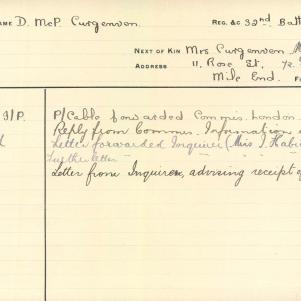 NAME D. McP. Curgenven REG. &C 32nd Batt
NEXT OF KIN Mrs Curgenven
ADDRESS 11, Rose St,
Mile End.
I/P. P/Cable forwarded Commis. London
Reply from Commis. Information
Letter forwarded Inquirer (Miss I. Habi
Further letter
Letter from Inquirer, advising receipt of